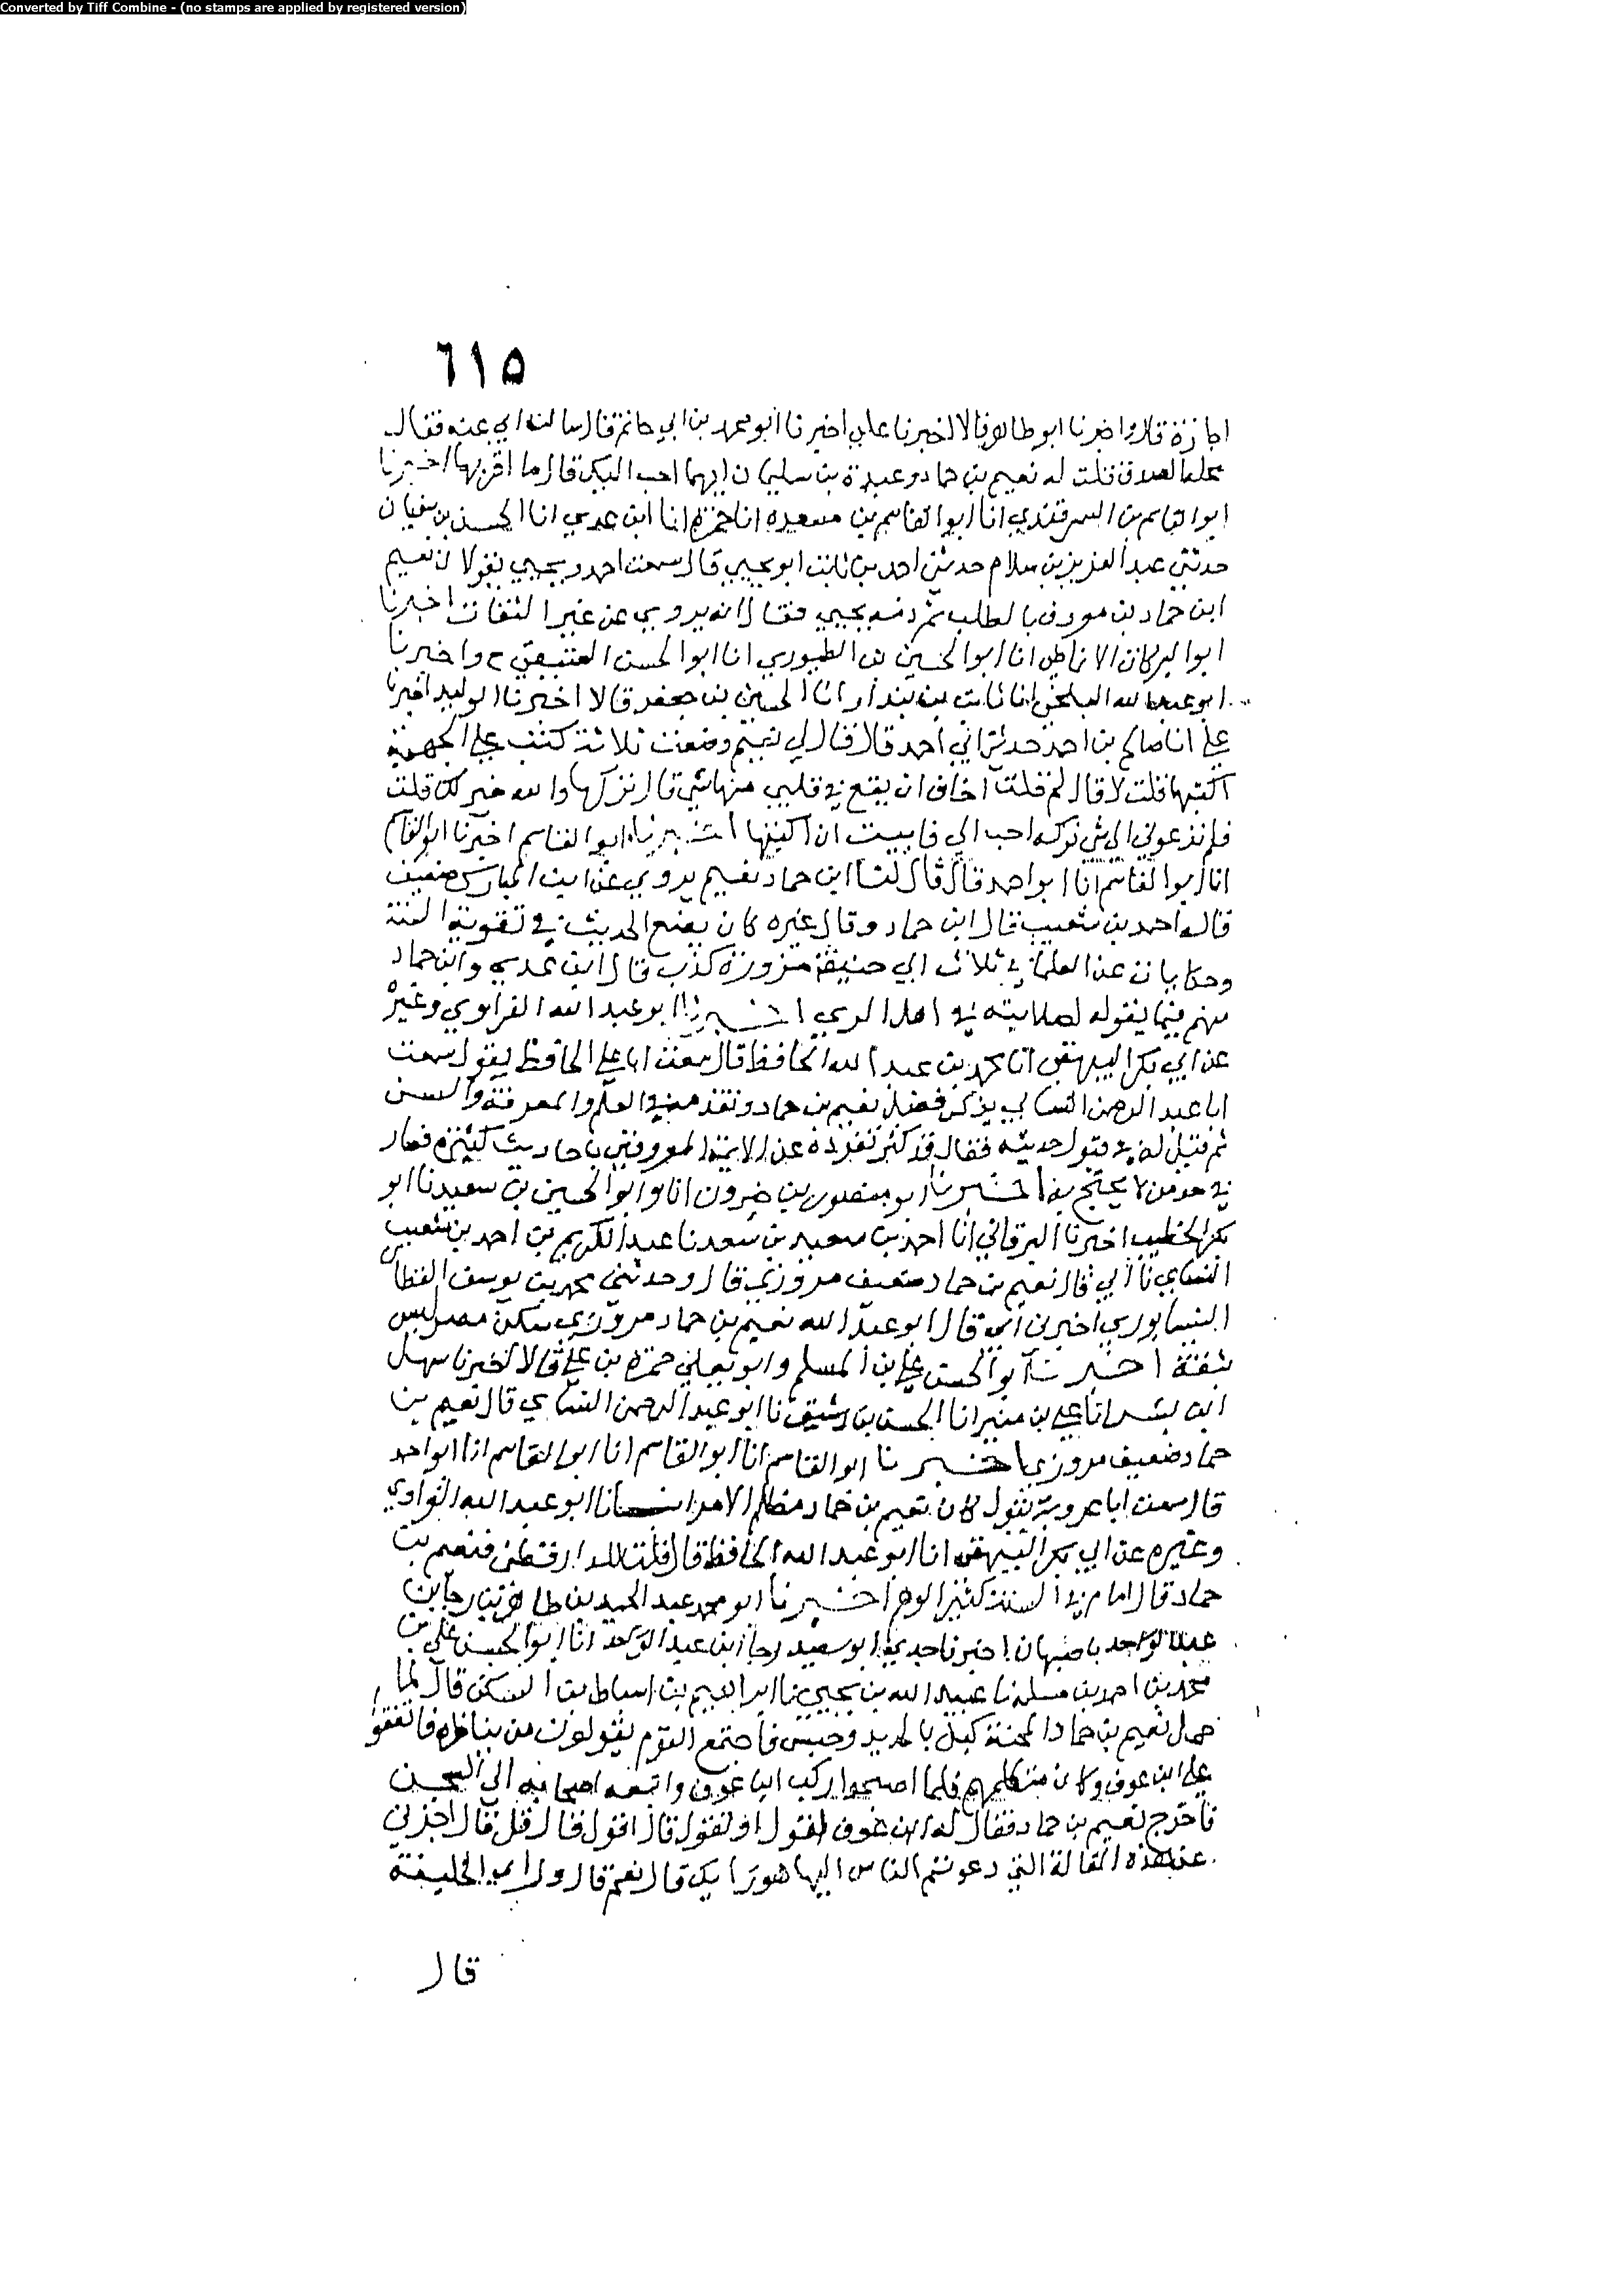 Converted by Tiff Combine - (no stamps are applied by registered version)
٦١٥
اجازة قال واخبرنا ابو طاهر قالا اخبرنا علي اخبرنا ابو محمد بن ابي حاتم قال سالت ابي عنه فقال
محله الصدق قلت له نعيم بن حماد وعبدة بن سليمان ايهما احب اليك قال ما اقربهما اخبرنا
ابو القاسم بن السمرقندي انا ابو القاسم بن مسعدة انا حمزة انا ابن عدي انا الحسن بن سفيان
حدثني عبد العزيز بن سلام حدثني احمد بن ثابت ابو يحيى قال سمعت احمد ويحيى يقولان نعيم
ابن حماد بن معروف بالطلب ثم ذمه يحيى فقال انه يروي عن غير الثقات اخبرنا
ابو البركات الانماطي انا ابو الحسين بن الطيوري انا ابو الحسن العتيقي ح واخبرنا
ابو عبد الله البلخي انا ثابت بن بندار انا الحسين بن جعفر قالا اخبرنا الوليد اخبرنا
علي انا صالح بن احمد حدثني ابي احمد قال قال لي نعيم وضعت ثلاثة كتب على الجهمية
اكتبها قلت لا قال لم قلت اخاف ان يقع في قلبي منها شي قال تركها والله خير لك قلت
فلم تدعوني الى شي تركه احب الي فابيت ان اكتبها اخبرنا ابو القاسم اخبرنا ابو القاسم
انا ابو القاسم انا ابو احمد قال قال لنا ابن حماد نعيم يروي عن ابن المبارك ضعيف
قاله احمد بن شعيب قال ابن حماد وقال غيره كان يضع الحديث في تقوية السنة
وحكايات عن العلما في ثلاث ابي حنيفة مزورة كذب قال ابن عدي وابن حماد
متهم فيما يقوله لصلابته في اهل الري اخبرنا ابو عبد الله الفراوي وغيره
عن ابي بكر البيهقي انا محمد بن عبد الله الحافظ قال سمعت ابا علي الحافظ يقول سمعت
ابا عبد الرحمن النسائي يذكر فضل نعيم بن حماد وتقدمه في العلم والمعرفة والسنن
ثم قيل له في قبول حديثه فقال قد كثر تفرده عن الائمة المعروفين باحاديث كثيرة فصار
في حد من لا يحتج به اخبرنا ابو منصور بن خيرون انا وابو الحسين بن سعيد نا ابو
بكر الخطيب اخبرنا البرقاني انا احمد بن سعيد بن سعد نا عبد الكريم بن احمد بن شعيب
النساي نا ابي قال نعيم بن حماد ضعيف مروزي قال وحدثني محمد بن يوسف القطان
النيسابوري اخبرني ابي قال ابو عبد الله نعيم بن حماد مروزي سكن مصر ليس
بثقة اخبرنا ابو الحسن علي بن المسلم وابو يعلى حمزة بن علي قالا اخبرنا سهل
ابن بشر انا علي بن منير انا الحسن بن رشيق نا ابو عبد الرحمن النساي قال نعيم بن
حماد ضعيف مروزي اخبرنا ابو القاسم انا ابو القاسم انا ابو القاسم انا ابو احمد
قال سمعت ابا عروبة يقول كان نعيم بن حماد مظلم الامر انبانا ابو عبد الله الفراوي
وغيره عن ابي بكر البيهقي انا ابو عبد الله الحافظ قال قلت للدارقطني فنعيم بن
حماد قال امام في السنة كثير الوهم اخبرنا ابو محمد عبد الحميد بن طاهر بن رجا بن
عبد الواحد باصبهان اخبرنا جدي ابو سعيد رجا بن عبد الواحد انا ابو الحسن علي بن
محمد بن احمد بن مسلة نا عبيد الله بن يحيى نا ابراهيم بن اسباط بن السكن قال لما
حمل نعيم بن حماد المحنة كبل بالحديد وحبس فاجتمع القوم يقولون من يناظره فاتفقوا
على ابن عوف وكان متكلمهم فلما اصبحوا ركب ابن عوف واتبعه اصحابه الى السجن
فاخرج نعيم بن حماد فقال له ابن عوف اقول او تقول قال اقول فقال قل قال اخبرني
عن هذه المقالة التي دعوتم الناس اليها هو رايك قال نعم قال وراي الخليفة
قال